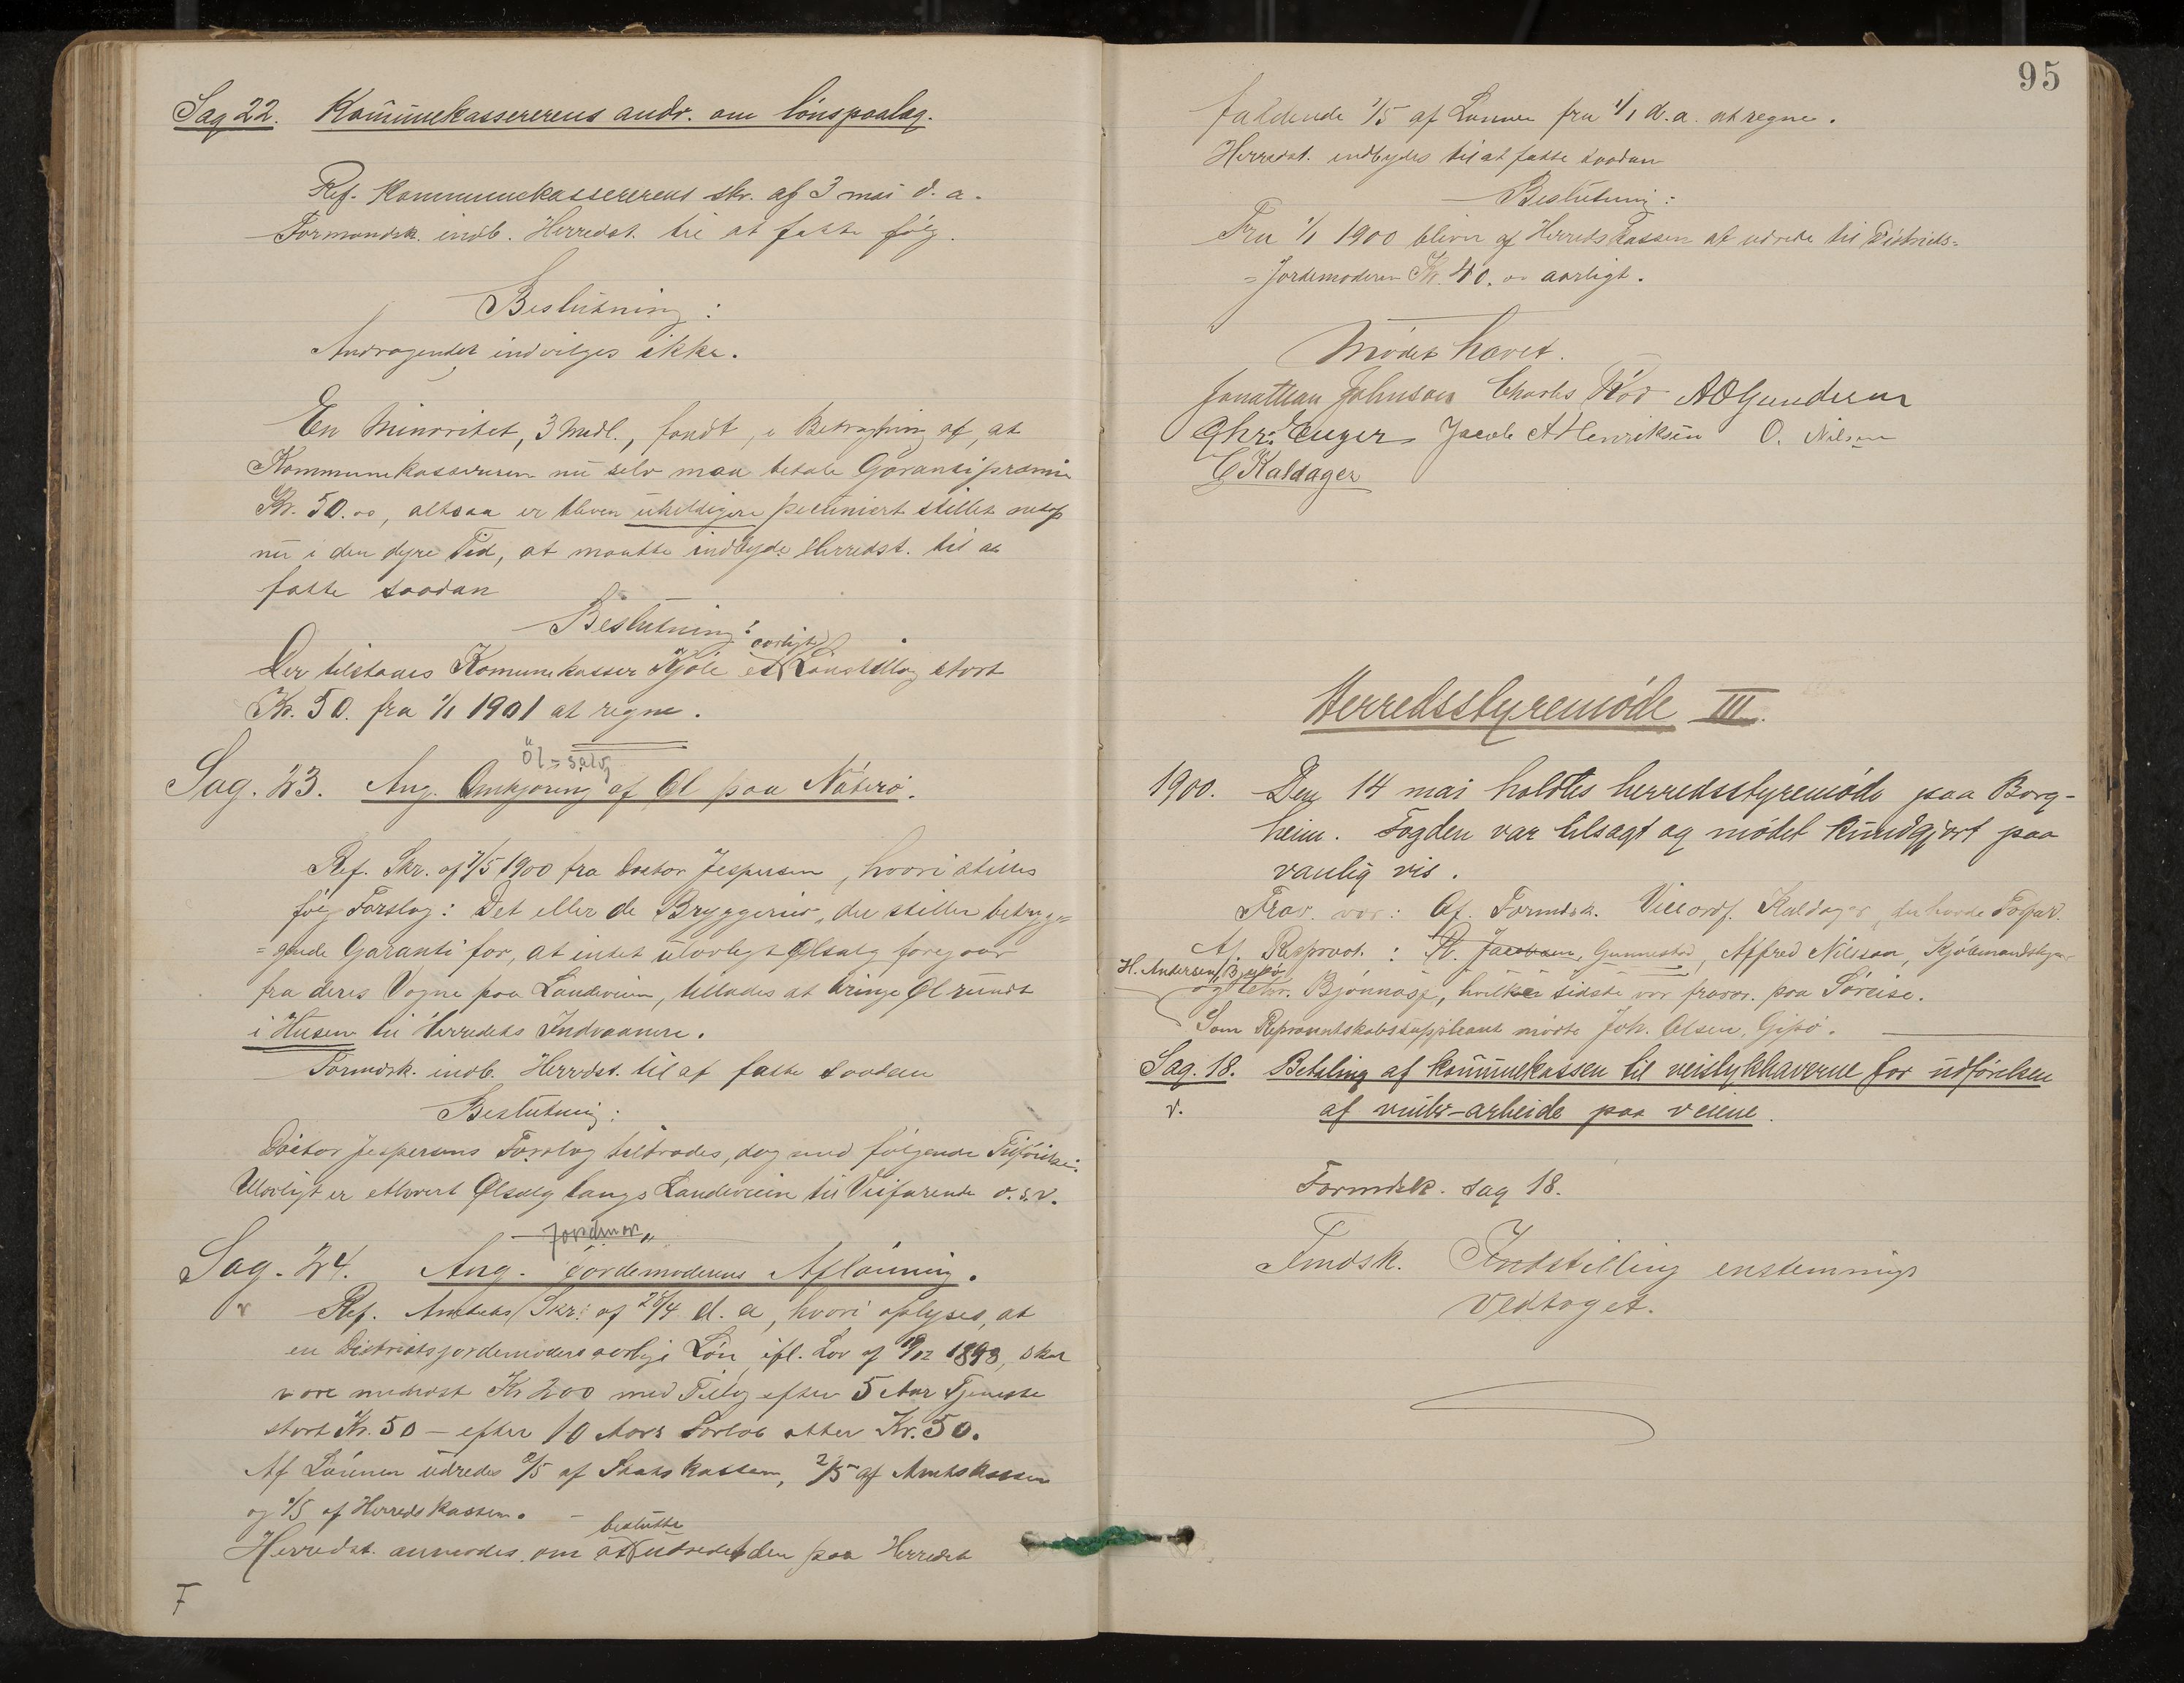 Sag 22. Kommunekassererens andr. om lönspaalæg.
Ref. Kommunekassererens skr. af 3 mai d. a.
Formandsk. indb. Herredst. til at fatte følg.
Beslutning:
Andragendet indvilges ikke.
En Minoritet, 3 Medl., fandt, i Betragtning af, at
Kommunekassereren nu selv maa betale Garantipræmie
Kr. 50.00, altsaa er bleven uheldigere pecuniært stillet netop
nu i den dyre Tid, at maatte indbyde Herredst. til at
fatte saadan
Beslutning:
aarligt
Der tilstaaes Komunekasser Kjøle et Lønstillæg stort
Kr. 50. fra 1/1 1901 at regne.
Öl-salg
Sag. 23. Ang. Omkjøring af Øl paa Nøterø.
Ref. Skr. af 7/5 1900 fra Doctor Jespersen, hvori stilles
følg. Forslag: Det eller de Bryggerier, der stiller betryg=
=gende Garanti for, at intet ulovligt Ølsalg foregaar
fra deres Vogne paa Landeveien, tillades at bringe Øl rundt
i Husene til Herredets Indvaanere.
Formdsk. indb. Herrdst. til at fatte saadan
Beslutning:
Doctor Jespersens Forslag tiltrædes, dog med følgende Tilføielse:
Ulovligt er ethvert Ølsalg langs Landeveien til Veifarende o.s.v.
Jordmor
Sag. 24. Ang. Jordemoderens Aflønning.
v Ref. Amtets Skr. af 28/4 d. a, hvori oplyses, at
en Distriktsjordemoders aarlige Løn, ifl. Lov af 19/12 1898, skal
være mindst Kr 200 med Tillæg efter 5 Aar Tjeneste
stort Kr. 50 – efter 10 Aars Forløb atter Kr. 50.
Af Lønnen udredes 2/5 af Statskassen, 2/5 af Amtskassen
og 1/5 af Herredskassen. –
beslutte
Herredst. anmodes om at udrede den paa Herredet
F
95
faldende 1/5 af Lønnen fra 1/1 d.a. at regne.
Herredst. indbydes til at fatte saadan
Beslutning:
Fra 1/1 1900 bliver af Herredskassen at udrede til Distrikts=
=Jordemoderen Kr. 40.00 aarligt.
Mødet hævet.
Jonathan Johnson Charles Röd A O Gundersen
Chr. Unger Jacob A Henriksen O. Nilsen
C Kaldager
Herredsstyremöde III.
1900. Den 14 mai holdtes herredsstyremöde paa Borg-
heim. Fogden var tilsagt og mödet kundgjort paa
vanlig vis.
Frav. var: Af Formdsk. Viceordf. Kaldager, der havde Forfald.
Af Repræst.: R. Jacobsen, Gunnestad, Alfred Nilsson, Kjøbmandskjær
H. Andersen, Buerø
og Chr. Bjønnæs, hvilken sidste var fravær. paa Søreise.
Som Repræsentskabssuppleant mødte Joh. Olsen, Gipø.
Sag. 18. Betaling af kommunekassen til veistykhaverne for udförelsen
v. af vinter-arbeide paa veiene.
Formdsk. sag 18.
Fmdsk. Indstilling enstemmigt
vedtaget.